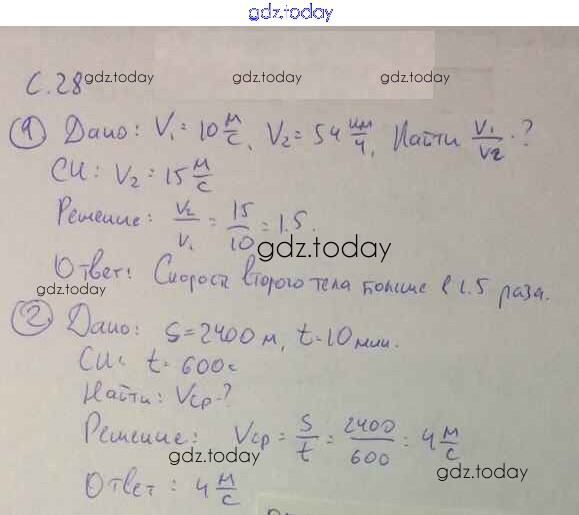 gdz.today
С. 28 gdz.today gdz.today gdz.today
① Дано: V₁ = 10 м/с, V₂ = 54 км/ч, Найти V₁/V₂ - ?
СИ: V₂ = 15 м/с
Решение: V₂/V₁ = 15/10 = 1.5.
gdz.today
Ответ: Скорость второго тела больше в 1.5 раза.
gdz.today
② Дано: S = 2400 м, t = 10 мин.
СИ: t = 600 с
Найти: Vср - ?
Решение: Vср = S/t = 2400/600 = 4 м/с
gdz.today gdz.today
Ответ: 4 м/с